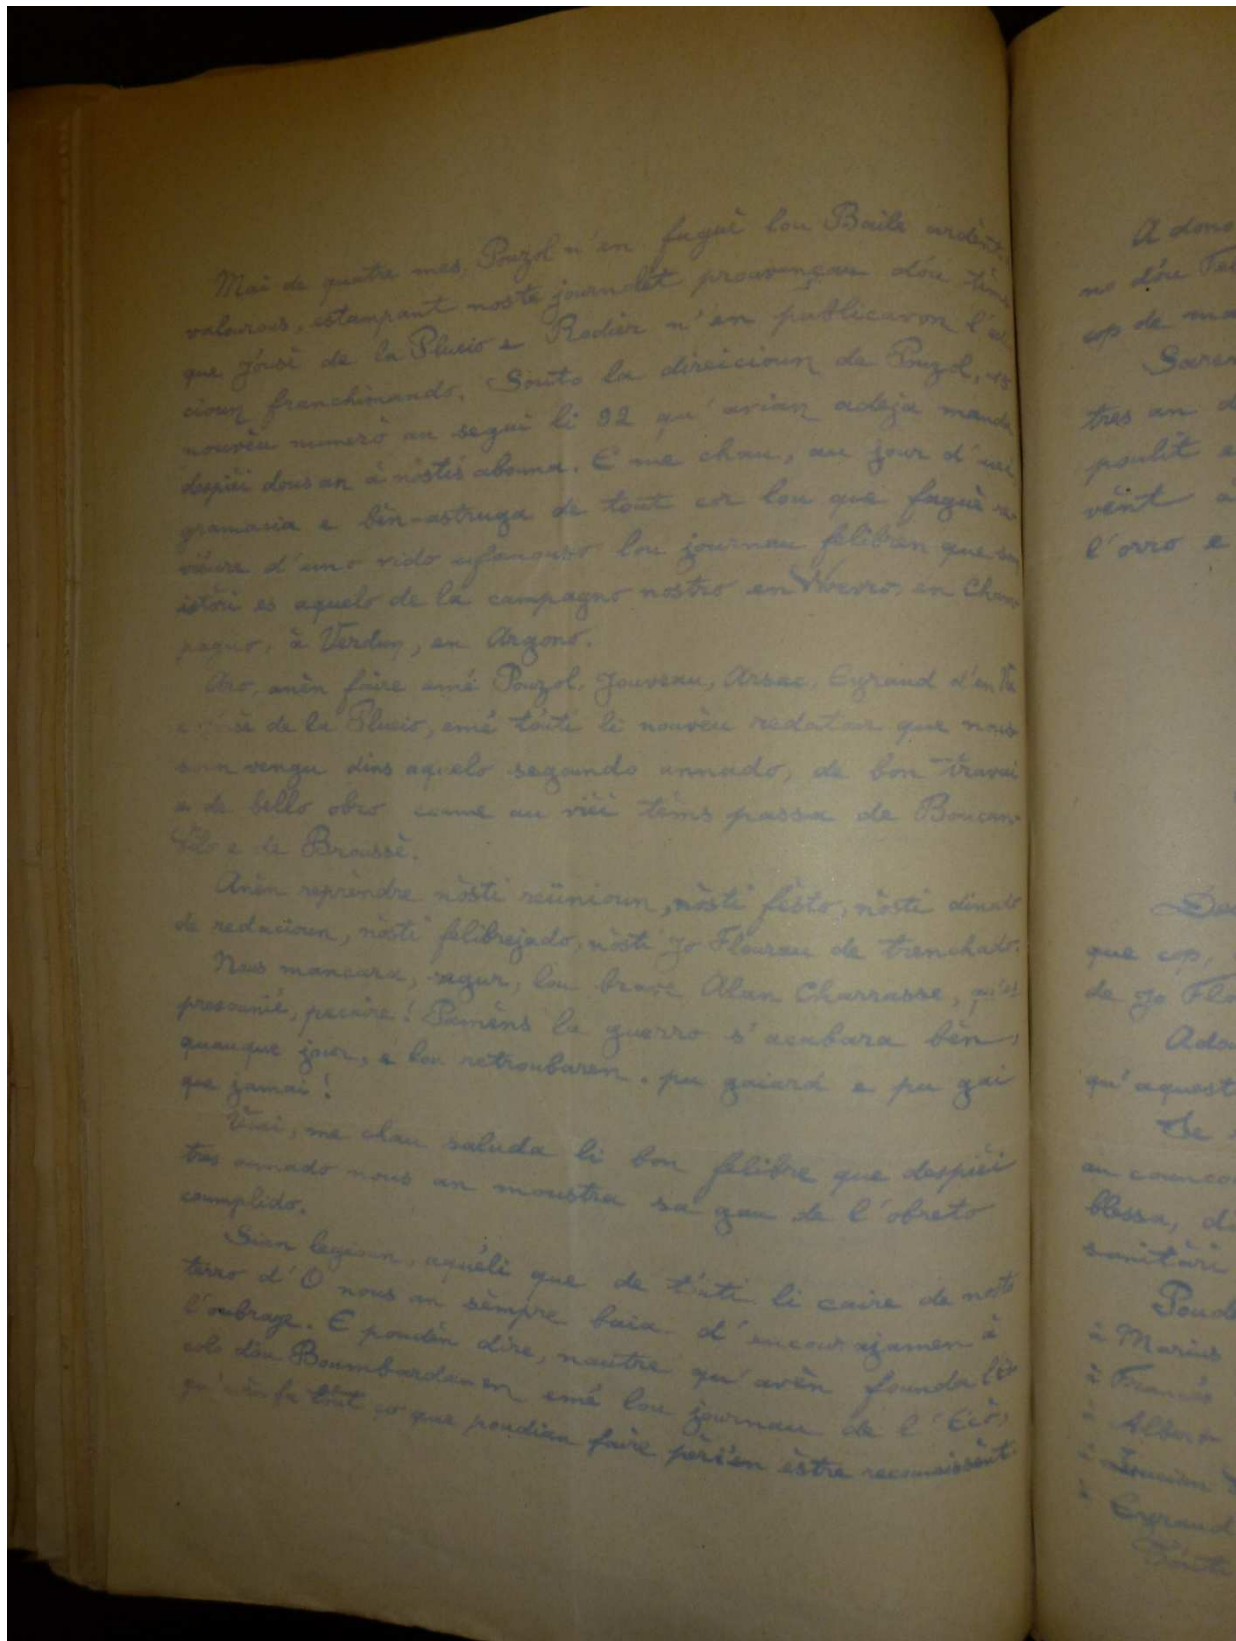 Mai de quatre mes, Pouzol n'en fuguè lou Baile ardènt,
valourous, estampant noste journalet prouvençau dóu tèms
que Jóusè de la Plueio e Radier n'en publicavon l'
cioun franchimando. Souto la direicioun de Pouzol, 15
nouvèu numerò an segui li 92 qu'avian adeja manda
despièi dous an à nòstis abouna. E me chau, au jour d'uei
gramacia e bèn-astruga de tout cor lou que faguè re-
viéure d'uno vido uflanouso lou journau felibren que soun
istòri es aquelo de la campagno nostro en Woevro, en Cham-
pagno, à Verdun, en Argono.
Aro, anèn faire emé Pouzol, Jouveau, Arsac, Eyraud d'en
de la Plueio, emé tóuti li nouvèu redatour que nous
soun vengu dins aquelo segoundo annado, de bon travai
e de bello obro coume au vièi tèms passa de Boucon-
villo e de Broussè.
Anèn reprendre nòsti reünioun, nòsti fèsto, nòsti dinado
de redacioun, nòsti felibrejado, nòsti Jo Flourau de trenchado.
Nous mancara, segur, lou brave Alan Charrasse, qu'es
presounié, pecaire! Pamens la guerro s'acabara bèn,
quauque jour, e lou retroubaren, pu gaiard e pu gai
que jamai!
Vuei, me chau saluda li bon felibre que despièi
tres annado nous an moustra sa gau de l'obreto
coumplido.
Sian legioun, aquéli que de tóuti li caire de nosto
terro d'O nous an sèmpre baia d'encourajamen à
l'oubrage. E poudèn dire, nautre qu'avèn founda l'Es-
colo dóu Boumbardamen emé lou journau de l'Ecò,
qu'avèn fa tout ço que poudian faire pèr i'en èstre recouneissènt.
A dono
no dóu
cop de
Saren
tres an d
poulit e
vènt a
l'orro e
que cop,
de Jo Flo
Adou
qu'aquest
Se
au counco
blessa, d
sanitàri
Poude
à Marius
à Francés
à Albert
à
à Eyraud
Tóuti